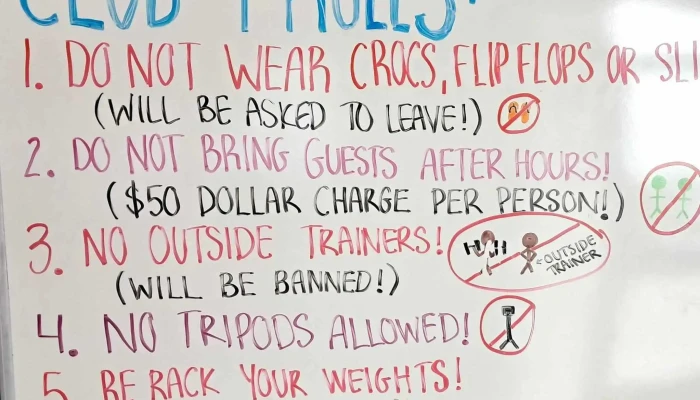 CLUB RULES:
1. DO NOT WEAR CROCS, FLIP FLOPS OR SLI
(WILL BE ASKED TO LEAVE!)
2. DO NOT BRING GUESTS AFTER HOURS!
($50 DOLLAR CHARGE PER PERSON!)
3. NO OUTSIDE TRAINERS!
←OUTSIDE TRAINER
(WILL BE BANNED!)
4. NO TRIPODS ALLOWED!
5. RE RACK YOUR WEIGHTS!